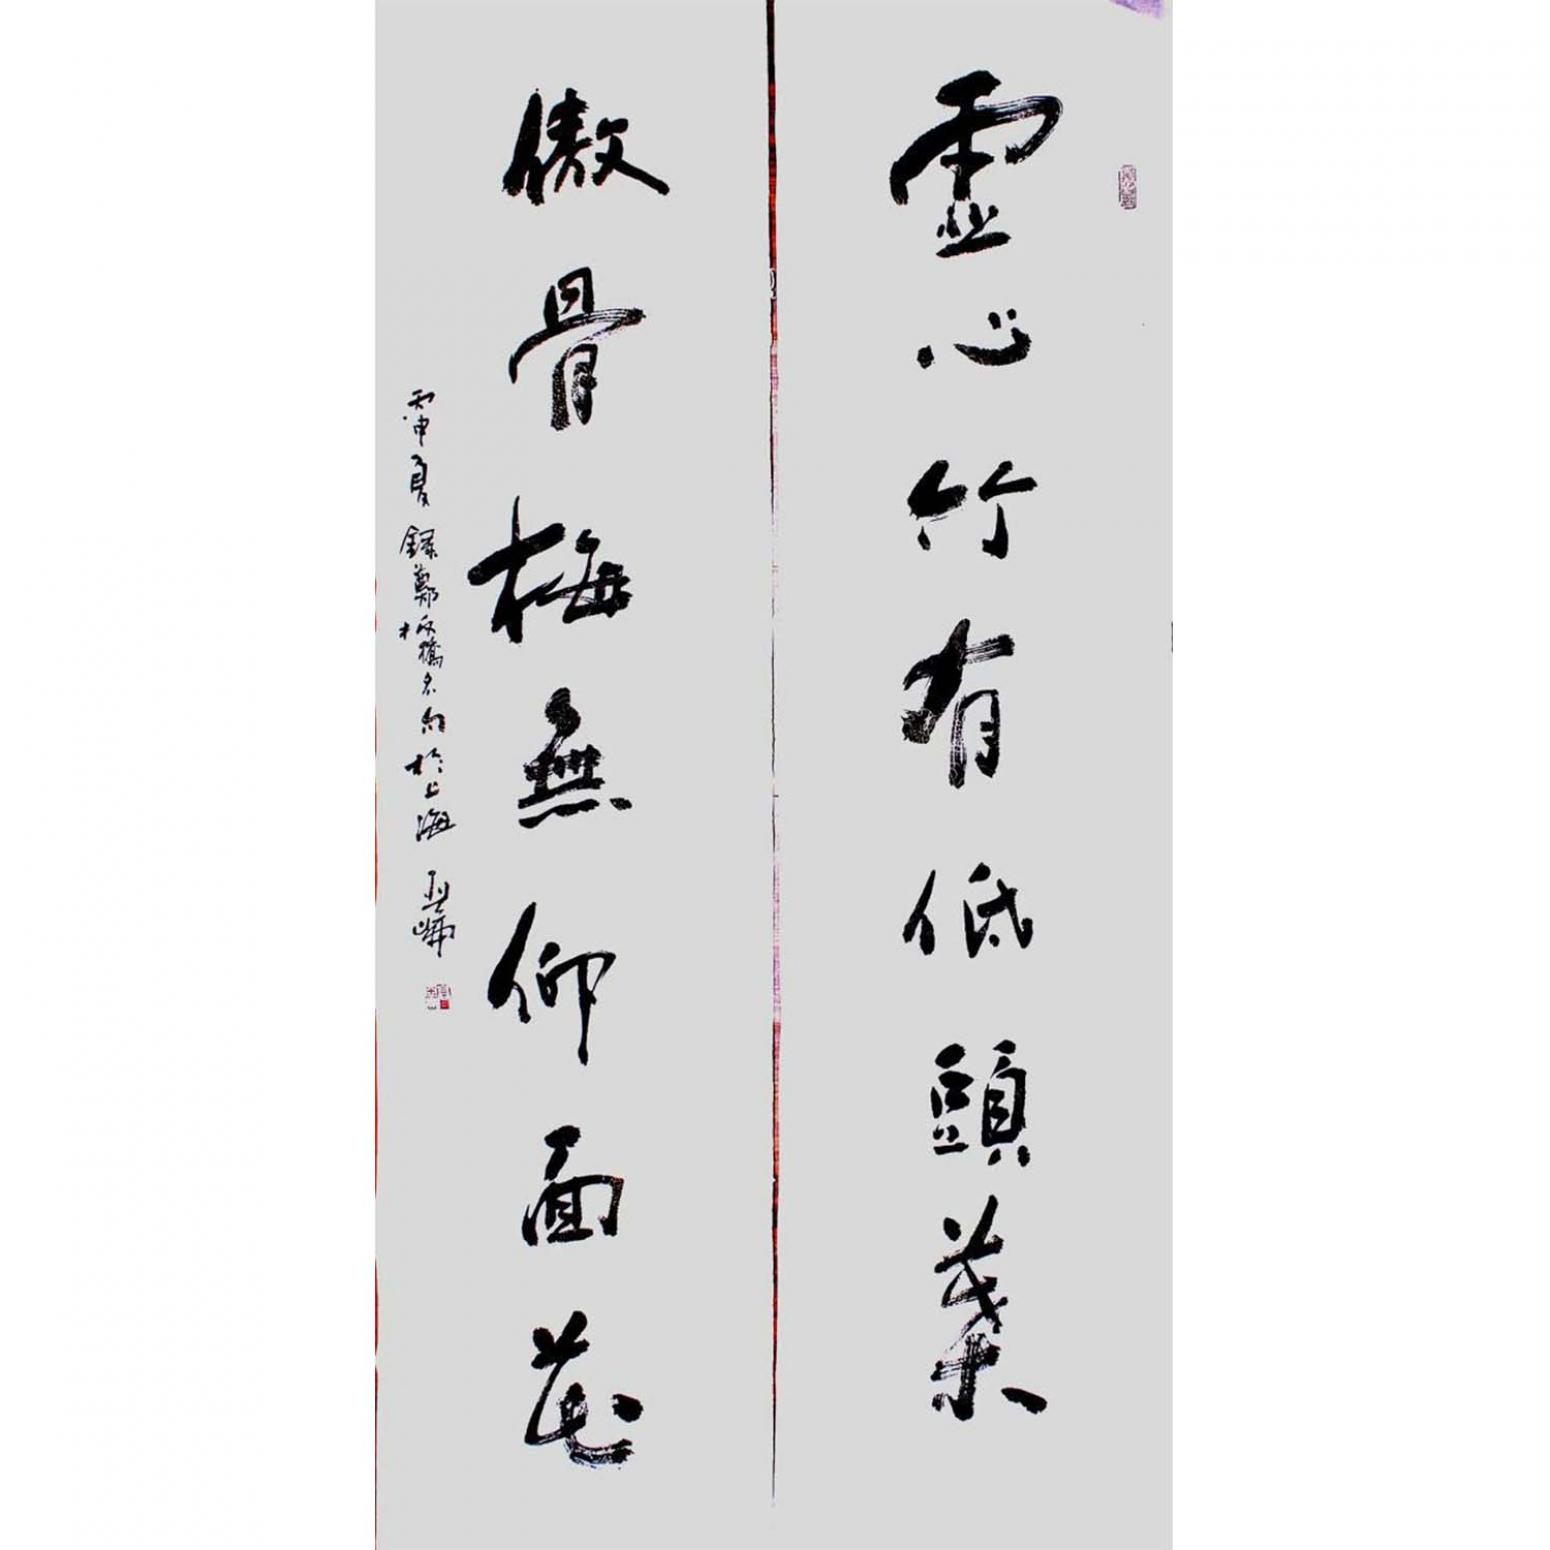 虛心竹有低頭葉
傲骨梅無仰面花
丙申夏錄鄭板橋名句於上海